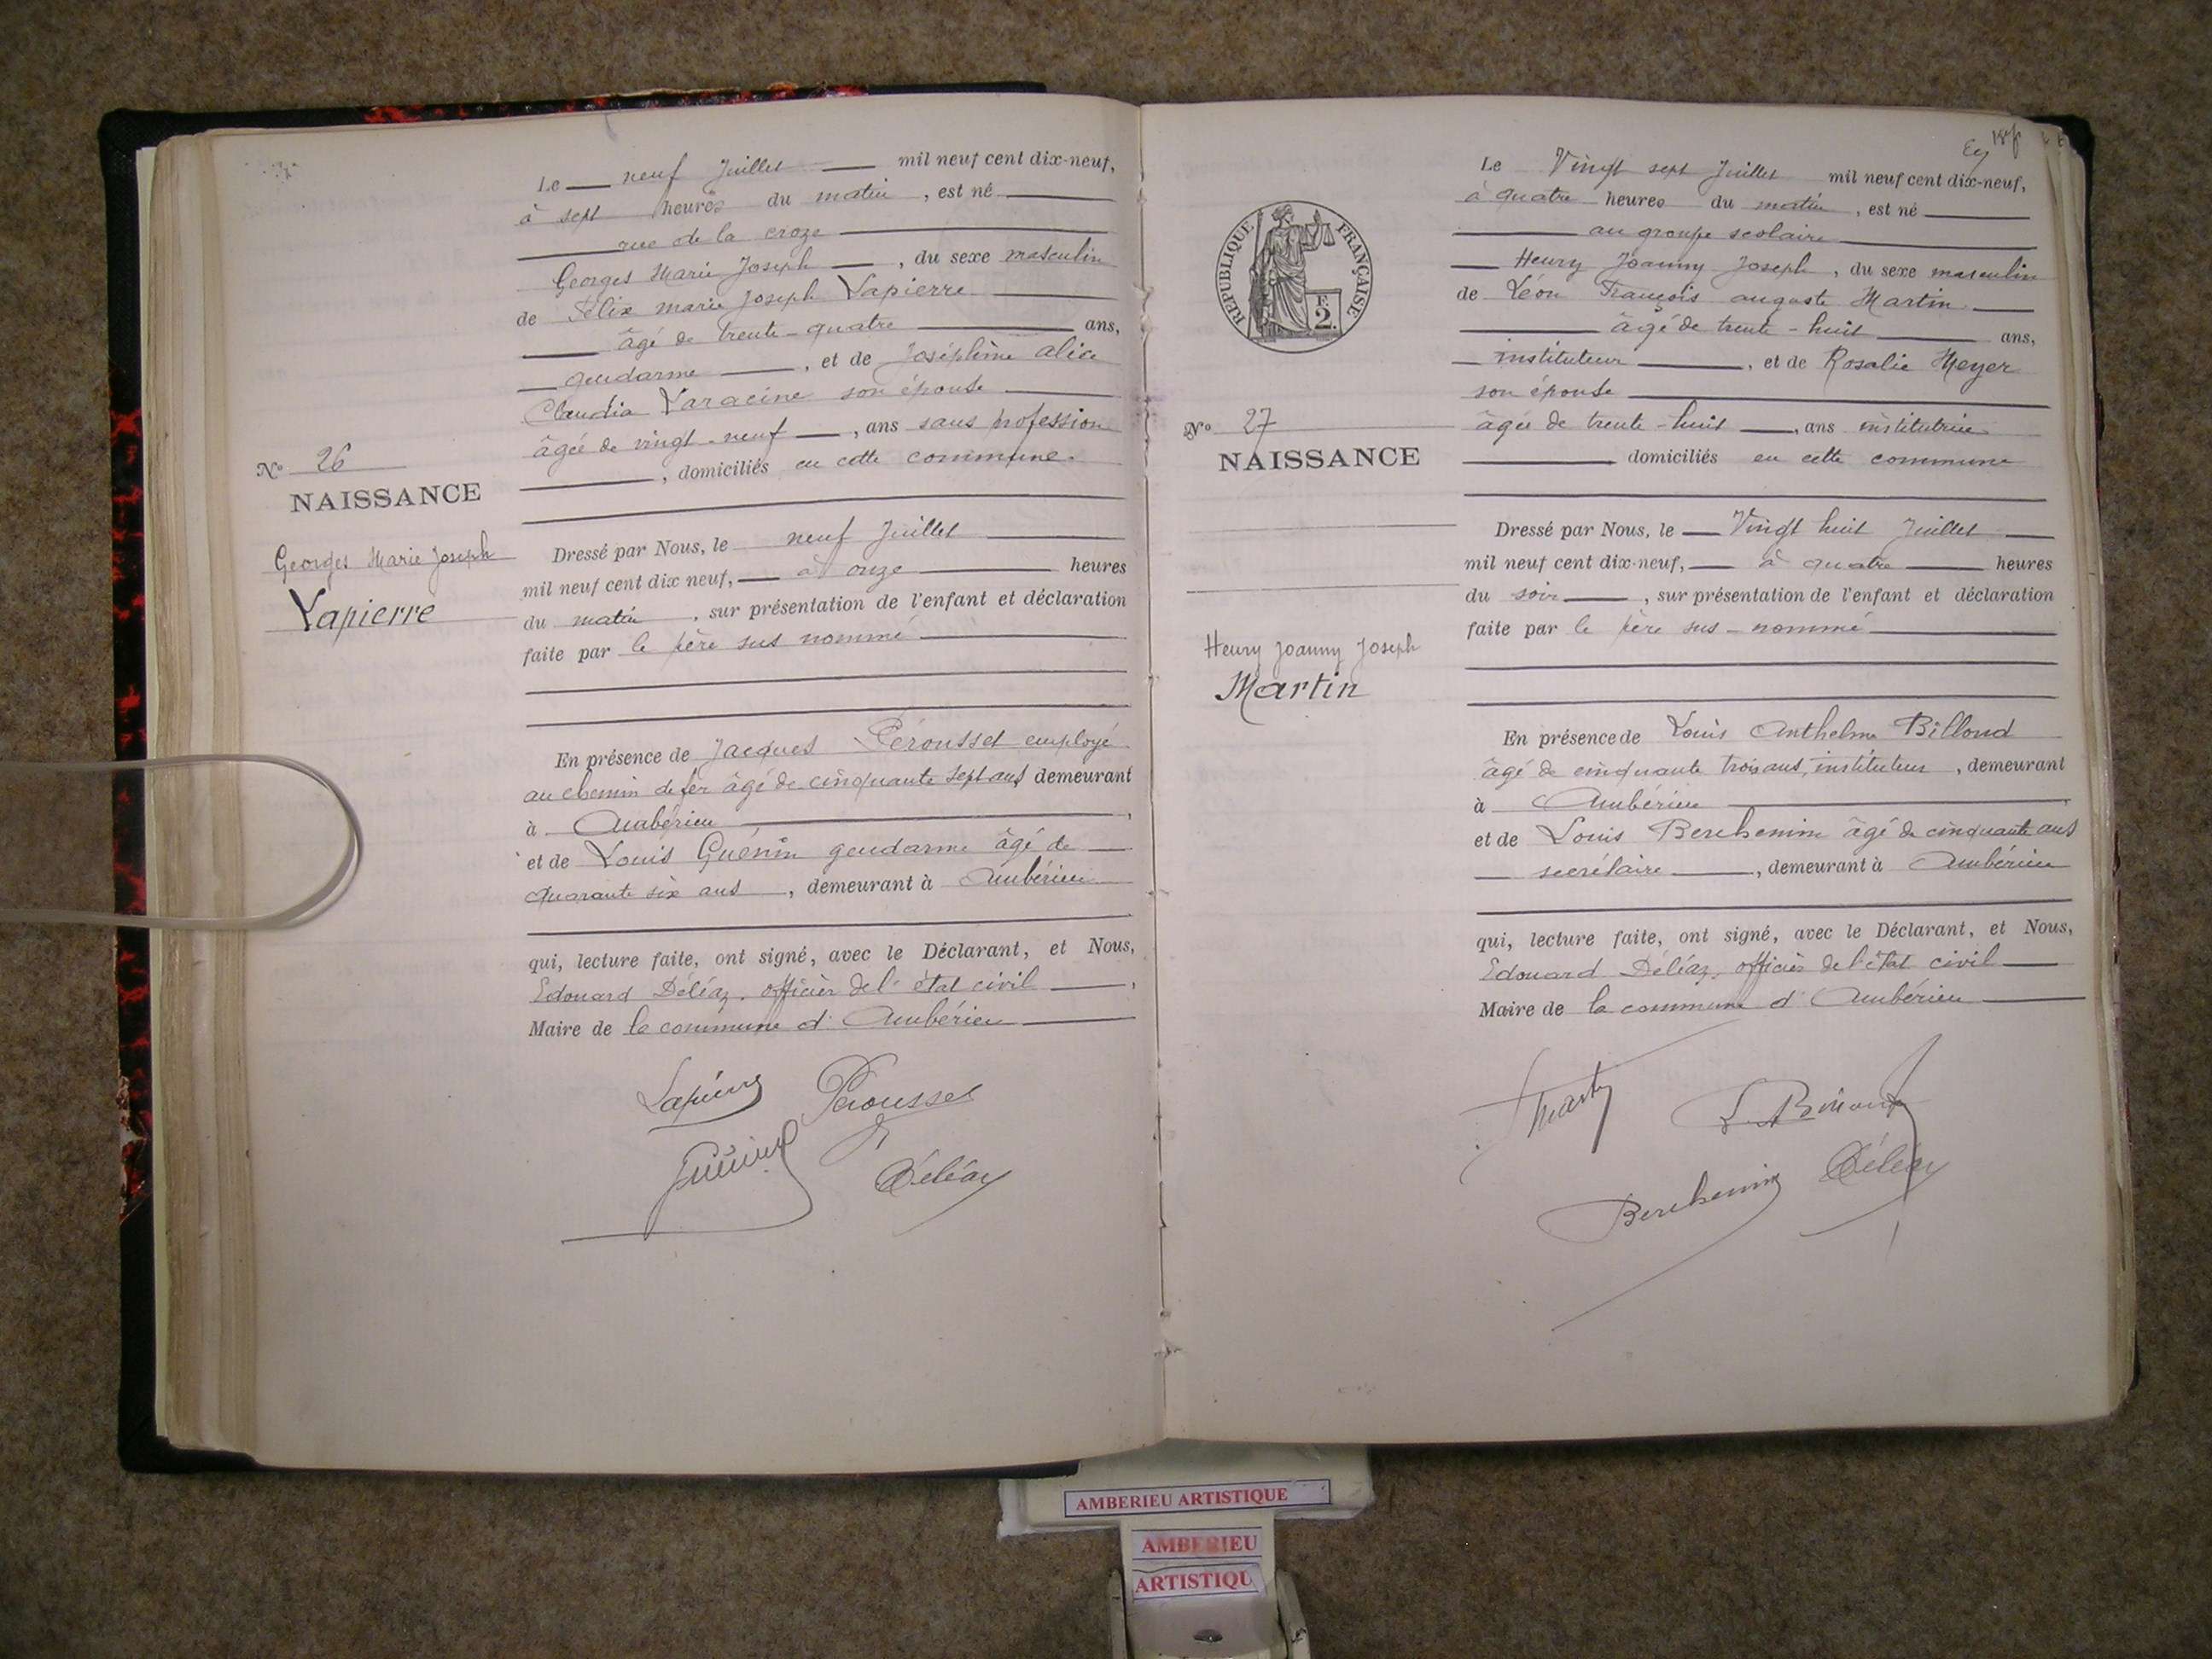 Le neuf Juillet mil neuf cent dix-neuf,
à sept heures du matin, est né
rue de la croze
Georges Marie Joseph, du sexe masculin
de Félix marie Joseph Lapierre
âgé de trente-quatre ans,
gendarme, et de Joséphine alice
Claudia Laracine son épouse
âgée de vingt-neuf, ans sans profession
, domiciliés en cette commune.
No 26
NAISSANCE
Georges Marie Joseph
Lapierre
Dressé par Nous, le neuf Juillet
mil neuf cent dix neuf, à onze heures
du matin, sur présentation de l'enfant et déclaration
faite par le père sus nommé
En présence de Jacques Pérousset employé
au chemin de fer âgé de cinquante sept ans demeurant
à Ambérieu,
et de Louis Guénin gendarme âgé de
quarante six ans, demeurant à Ambérieu
qui, lecture faite, ont signé, avec le Déclarant, et Nous,
Edouard Déléaz, officier de l'état civil,
Maire de la commune d'Ambérieu
Lapierre Pérousset
Guénin Déléaz
Le Vingt sept Juillet mil neuf cent dix-neuf,
à quatre heures du matin, est né
au groupe scolaire
Henry Joanny Joseph, du sexe masculin
de Léon François auguste Martin
âgé de trente-huit ans,
instituteur, et de Rosalie Meyer
son épouse
âgée de trente-huit, ans institutrice
domiciliés en cette commune
RÉPUBLIQUE FRANÇAISE
2
No 27
NAISSANCE
Henry Joanny Joseph
Martin
Dressé par Nous, le Vingt huit Juillet
mil neuf cent dix-neuf, à quatre heures
du soir, sur présentation de l'enfant et déclaration
faite par le père sus-nommé
En présence de Louis Anthelme Billoud
âgé de cinquante trois ans, instituteur, demeurant
à Ambérieu
et de Louis Berchemin âgé de cinquante ans
secrétaire, demeurant à Ambérieu
qui, lecture faite, ont signé, avec le Déclarant, et Nous,
Edouard Déléaz, officier de l'état civil
Maire de la commune d'Ambérieu
Berchemin Déléaz
AMBERIEU ARTISTIQUE
AMBERIEU
ARTISTIQU